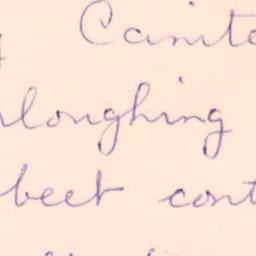 Canite
loughing
beet cont